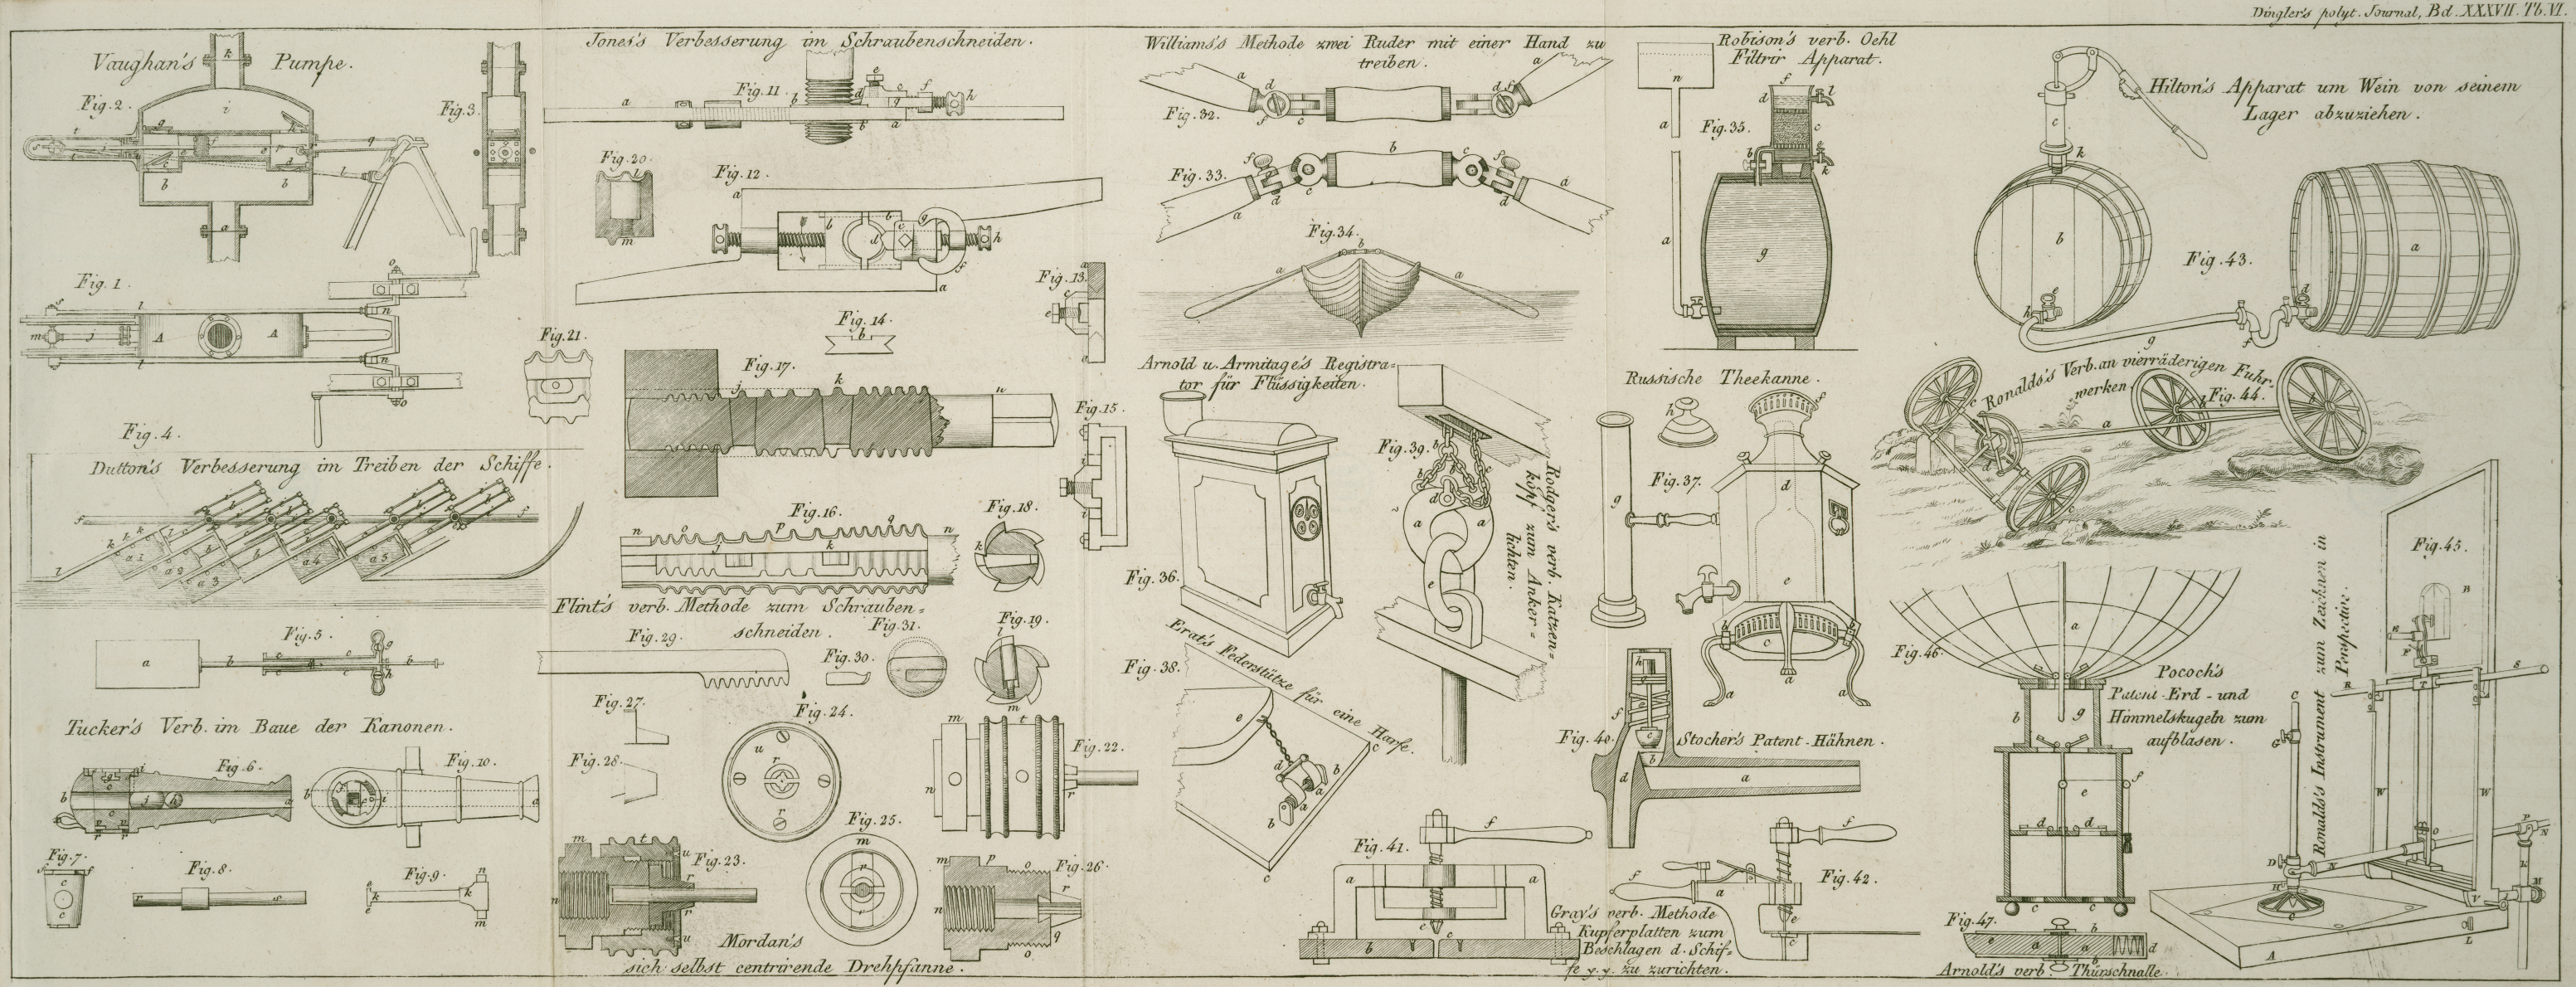 Dingler's polyt. Journal, Bd. XXXVII. Tb. VI.
Vaughan's Pumpe.
Fig. 2.
Fig. 3.
Fig. 1.
Fig. 4.
Dutton's Verbesserung im Treiben der Schiffe.
Fig. 5.
Tucker's Verb. im Baue der Kanonen.
Fig. 6.
Fig. 10.
Fig. 7.
Fig. 8.
Fig. 9.
Jones's Verbesserung im Schraubenschneiden.
Fig. 11.
Fig. 20.
Fig. 12.
Fig. 13.
Fig. 14.
Fig. 21.
Fig. 17.
Fig. 15.
Fig. 16.
Fig. 18.
Flint's verb. Methode zum Schrauben=
schneiden.
Fig. 29.
Fig. 31.
Fig. 19.
Fig. 30.
Fig. 27.
Fig. 24.
Fig. 22.
Fig. 28.
Fig. 25.
Fig. 23.
Fig. 26.
Mordan's
sich selbst centrirende Drehpfanne.
Williams's Methode zwei Ruder mit einer Hand zu
treiben.
Fig. 32.
Fig. 33.
Fig. 34.
Arnold u. Armitage's Registra=
tor für Flüssigkeiten.
Fig. 36.
Fig. 39.
Rodger's verb. Katzen=
kopf zum Anker=
lichten.
Erat's Federstütze für eine Harfe.
Fig. 38.
Fig. 41.
Robison's verb. Oehl
Filtrir Apparat.
Fig. 35.
Russische Theekanne.
Fig. 37.
Fig. 40.
Stocher's Patent-Hähnen.
Fig. 42.
Gray's verb. Methode
Kupferplatten zum
Beschlagen d. Schif=
fe y. y. zu zurichten.
Hilton's Apparat um Wein von seinem
Lager abzuziehen.
Fig. 43.
Ronalds's Verb. an vierräderigen Fuhr=
werken.
Fig. 44.
Fig. 45.
Ronalds's Instrument zum Zeichnen in
Perspective.
Fig. 46.
Pococh's
Patent-Erd- und
Himmelskugeln zum
aufblasen.
Fig. 47.
Arnold's verb. Thürschnalle.